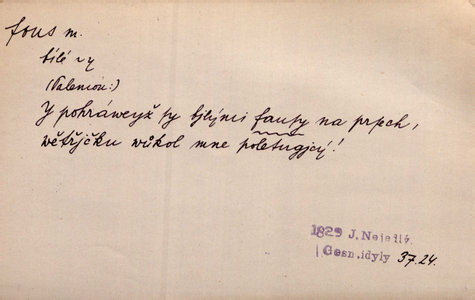 fous m.
bílé ~ y
(Palemon:)
Y pohráweyž sy bjlými fausy na prsech,
wětřjčku wůkol mne poletugjcý!
1829 J. Nejedlý.
Gesn.idyly 37.24.